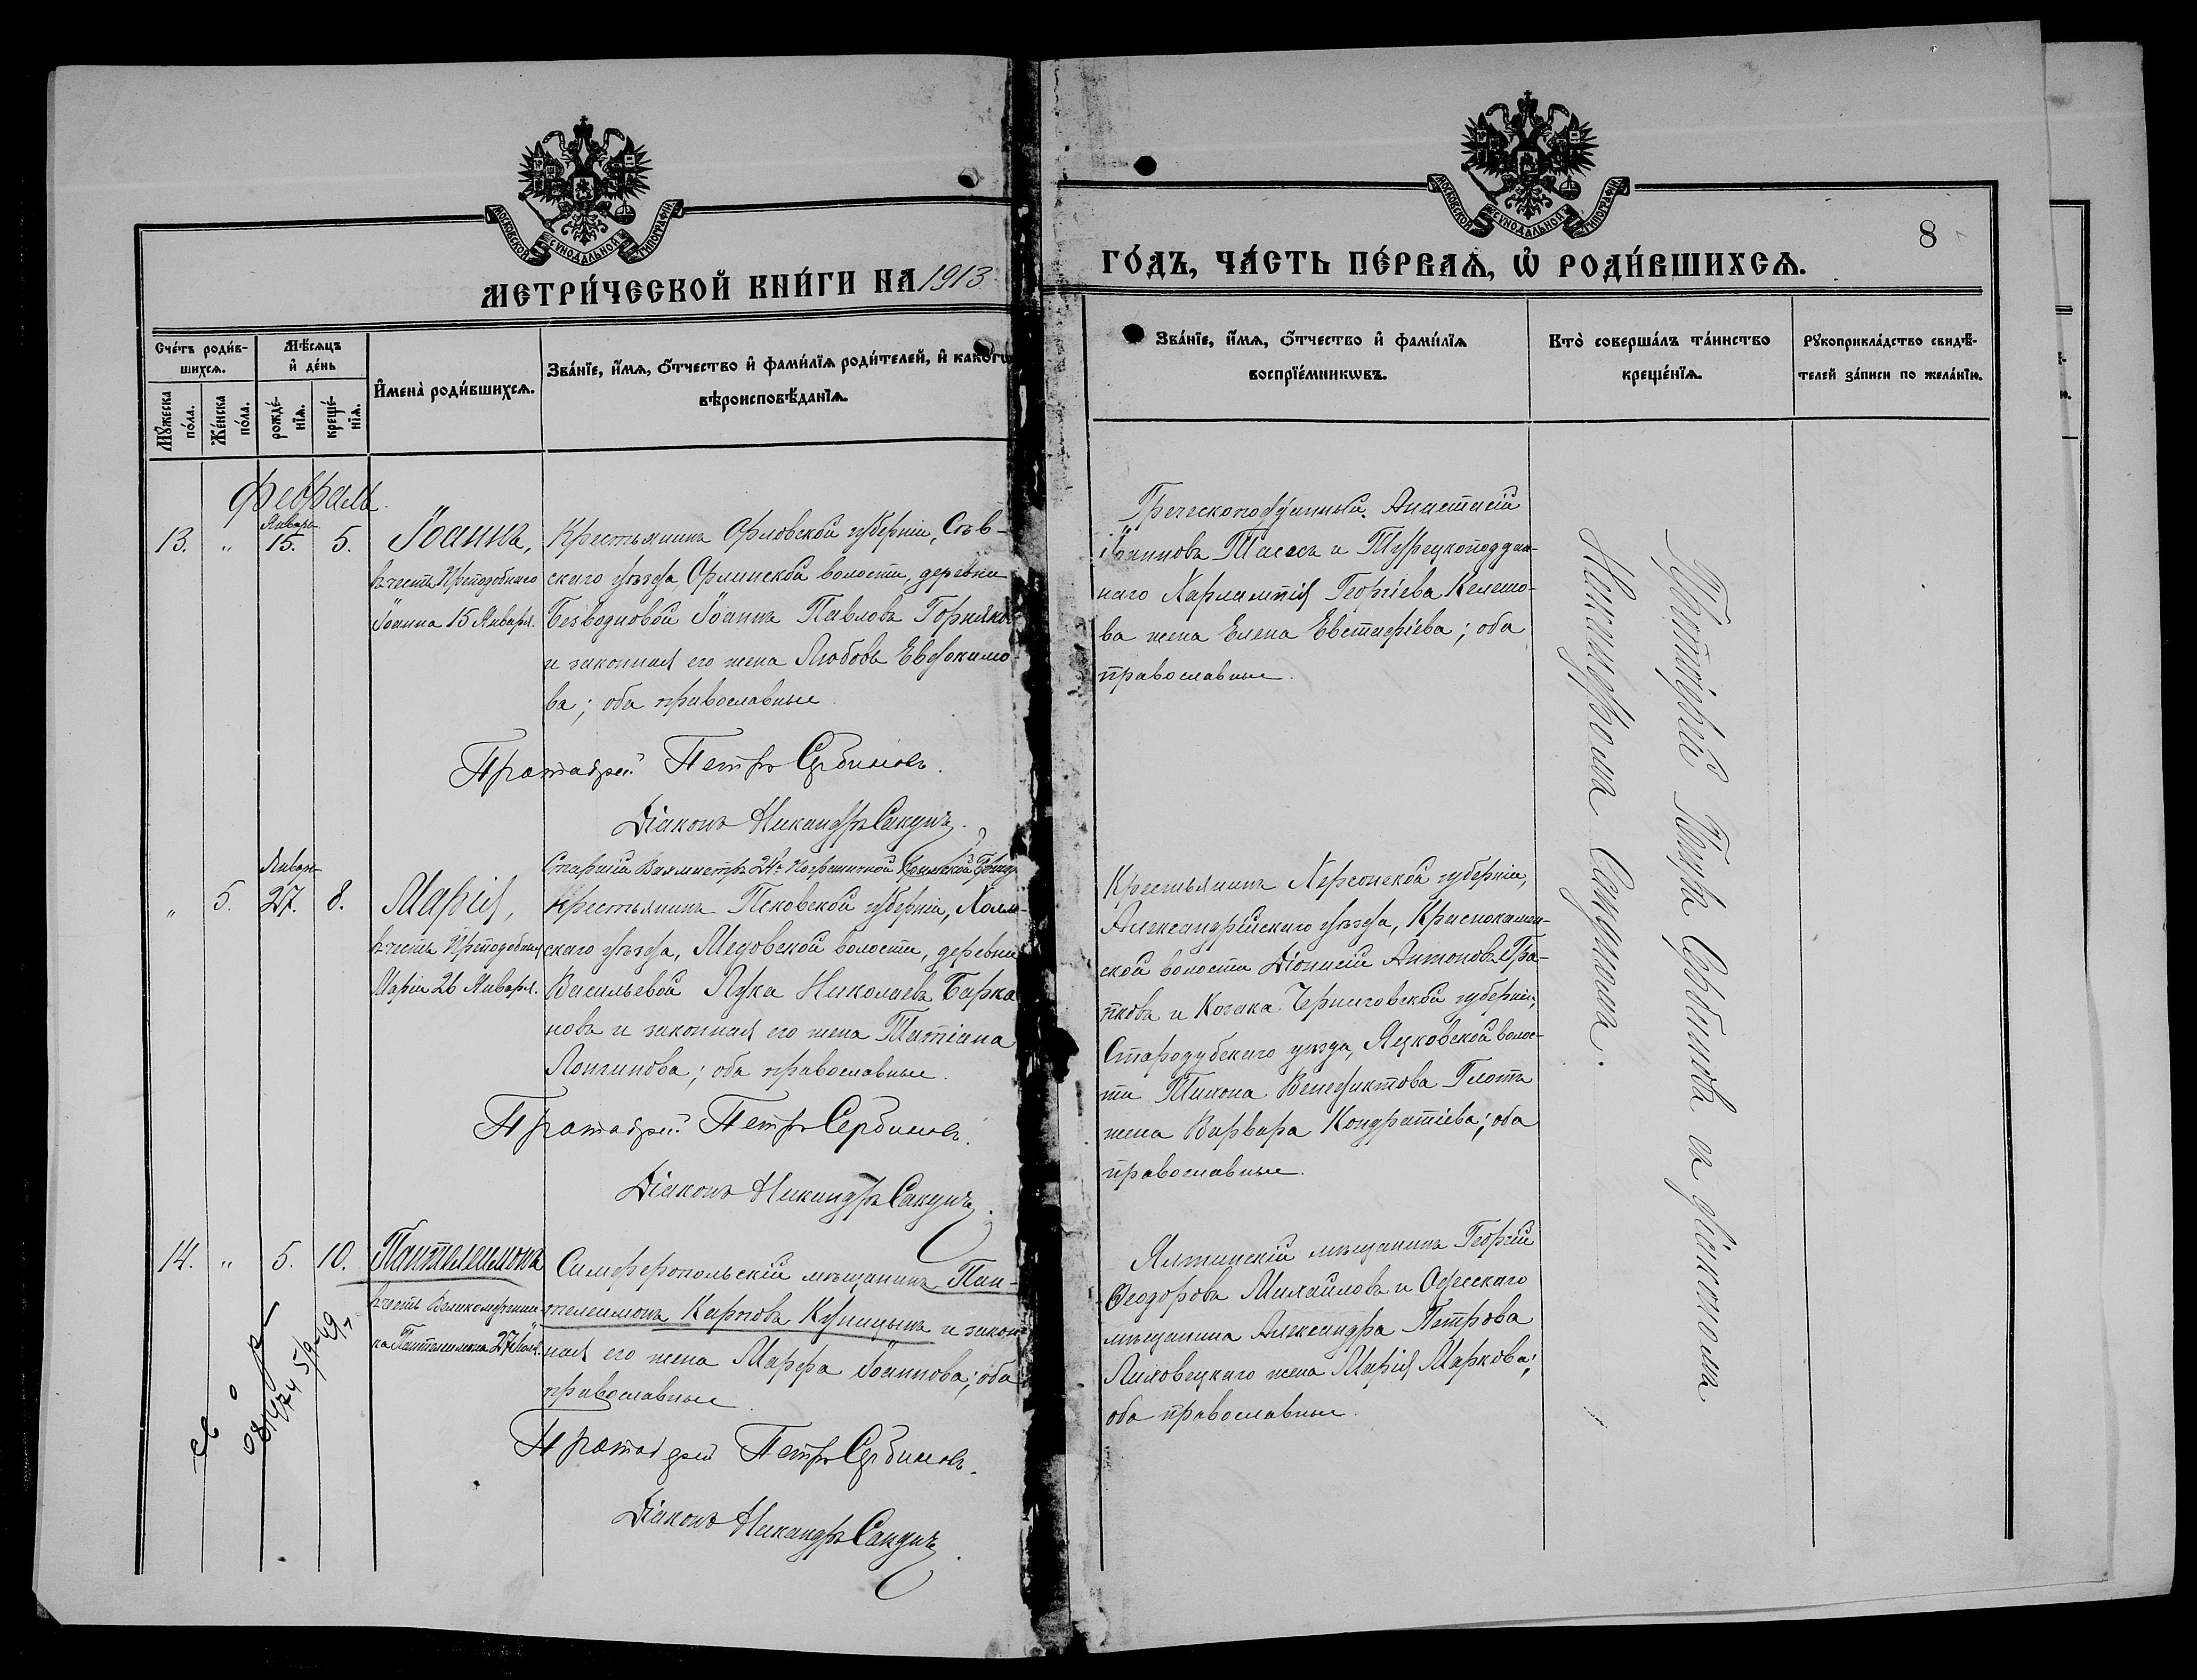 МОСКОВСКОЙ СУНОДАЛЬНОЙ ТИПОГРАФІИ
МЕТРИ́ЧЕСКОЙ КНИ́ГИ НА 1913
Сче́тъ роди́вшихсѧ.
Мѣ́сѧцъ и҆ де́нь
И҆мена̀ роди́вшихсѧ.
Зва́нїе, и҆́мѧ, ѻ҆́тчество и҆ фами́лїѧ роди́телей, и҆ како́гѡ
вѣроисповѣ́данїѧ.
Мꙋ́жеска по́ла.
Же́нска по́ла.
рожде́нїѧ.
креще́нїѧ.
Февраль.
13. „ Январь 15. 5.
Іоаннъ,
въ честь Преподобнаго
Іоанна 15 Января.
Крестьянинъ Орловской губерніи, Сѣв-
скаго уѣзда, Орлинской волости, деревни
Безводновой Іоаннъ Павловъ Горняковъ
и законная его жена Любовь Евдокимо-
ва; оба православные.
Протоіерей Петръ Сербиновъ.
Діаконъ Никандръ Сакунъ.
„ 5. Январь 27. 8.
Марія,
въ честь Преподобныя
Маріи 26 Января.
Старшій Вахмистръ 24й Пограничной
Крестьянинъ Псковской губерніи, Холм-
скаго уѣзда, Медовской волости, деревни
Васильевой Лука Николаевъ Барка-
новъ и законная его жена Татіана
Логгинова; оба православные.
Протоіерей Петръ Сербиновъ.
Діаконъ Никандръ Сакунъ.
14. „ 5. 10.
Пантелеимонъ
въ честь Великомучени-
ка Пантелеимона 27 Іюля.
Симферопольскій мѣщанинъ Пан-
телеимонъ Карповъ Куницынъ и закон-
ная его жена Марѳа Іоаннова; оба
православные.
Протоіерей Петръ Сербиновъ.
Діаконъ Никандръ Сакунъ.
МОСКОВСКОЙ СУНОДАЛЬНОЙ ТИПОГРАФІИ
8
ГО́ДЪ, ЧА́СТЬ ПЕ́РВАѦ, Ѡ҆ РОДИ́ВШИХСѦ.
Зва́нїе, и҆́мѧ, ѻ҆́тчество и҆ фами́лїѧ
воспрїе́мникѡвъ.
Кто̀ соверша́лъ та́инство
креще́нїѧ.
Рꙋкоприкла́дство свидѣ́-
телей за́писи по жела́нїю.
Греческоподданный Анастасій
Іоанновъ Тасасъ и Турецкоподдан-
наго Харлампія Георгіева Келешо-
ва жена Елена Евстафіева; оба
православные.
Крестьянинъ Херсонской губерніи,
Александрійскаго уѣзда, Краснокамен-
ской волости Діонисій Антоновъ Гра-
пковъ и Козака Черниговской губерніи,
Стародубскаго уѣзда, Яцковской волос-
ти Тихона Венедиктова Глотъ
жена Варвара Кондратіева; оба
православные.
Ялтинскій мѣщанинъ Георгій
Ѳеодоровъ Михайловъ и Одесскаго
мѣщанина Александра Петрова
Лиховецкаго жена Марія Маркова;
оба православные.
Протоіерей Петръ Сербиновъ съ діакономъ
Никандромъ Сакуномъ.